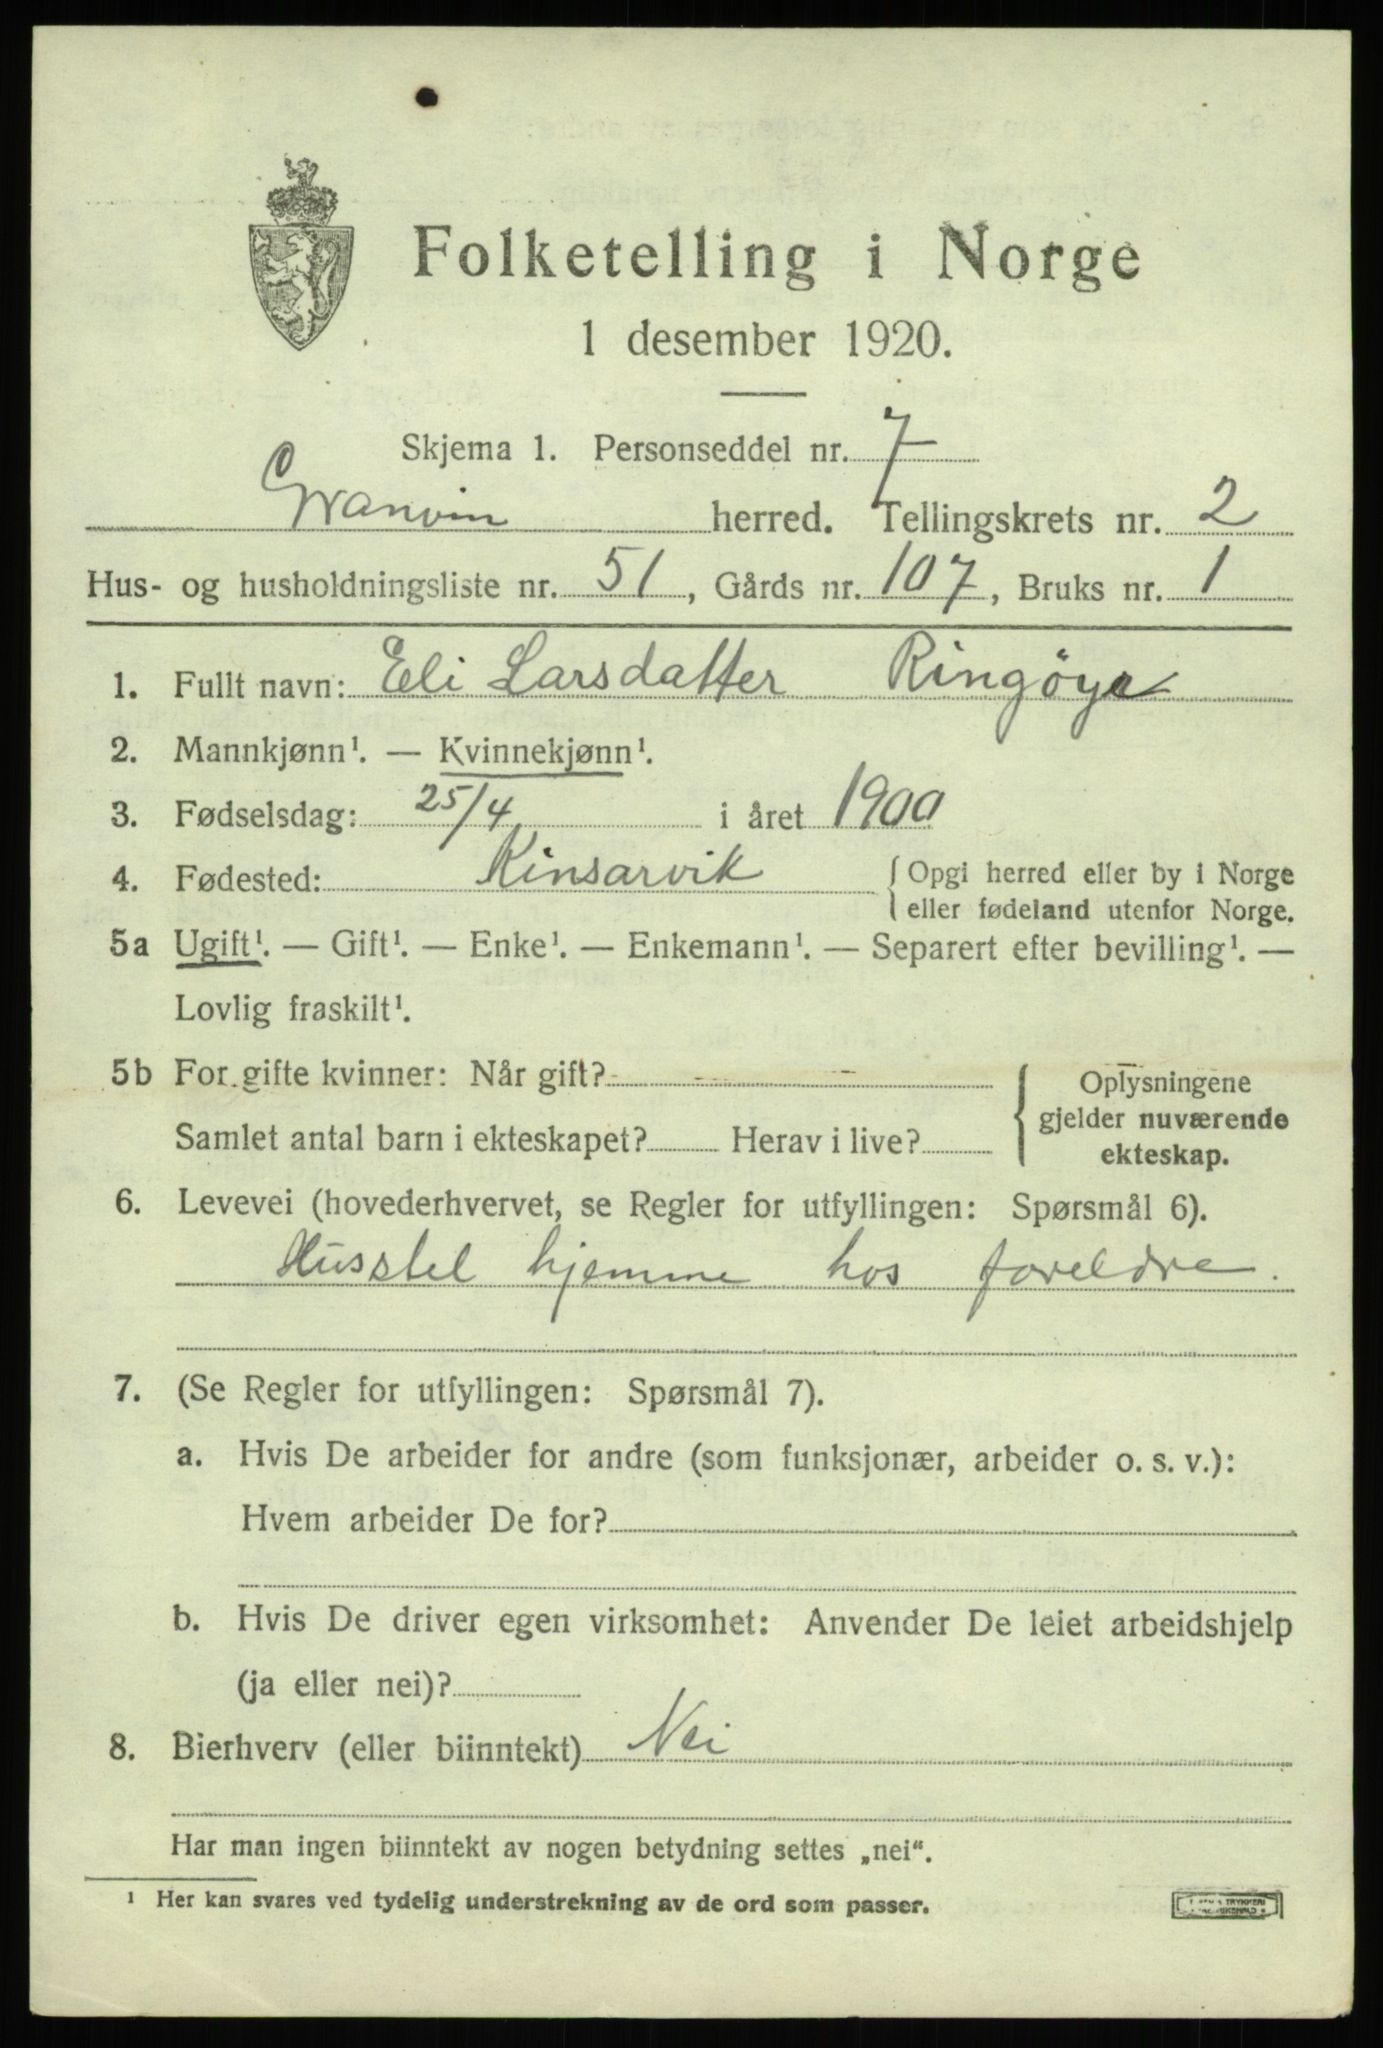 Folketelling i Norge
1 desember 1920.
Skjema 1. Personseddel nr. 7
Granvin herred. Tellingskrets nr. 2
Hus- og husholdningsliste nr. 51, Gårds nr. 107, Bruks nr. 1
1. Fullt navn: Eli Larsdatter Ringöyr
2. Mannkjønn¹. — Kvinnekjønn¹.
3. Fødselsdag: 25/4 i året 1900
4. Fødested: Kinsarvik { Opgi herred eller by i Norge
eller fødeland utenfor Norge.
5a Ugift¹. — Gift¹. — Enke¹. — Enkemann¹. — Separert efter bevilling¹. —
Lovlig fraskilt¹.
5b For gifte kvinner: Når gift?
Samlet antal barn i ekteskapet? Herav i live?
{ Oplysningene
gjelder nuværende
ekteskap.
6. Levevei (hovederhvervet, se Regler for utfyllingen: Spørsmål 6).
Husstel hjemme hos foreldre.
7. (Se Regler for utfyllingen: Spørsmål 7).
a. Hvis De arbeider for andre (som funksjonær, arbeider o. s. v.):
Hvem arbeider De for?
b. Hvis De driver egen virksomhet: Anvender De leiet arbeidshjelp
(ja eller nei)?
8. Bierhverv (eller biinntekt) Nei
Har man ingen biinntekt av nogen betydning settes „nei“.
¹ Her kan svares ved tydelig understrekning av de ord som passer.